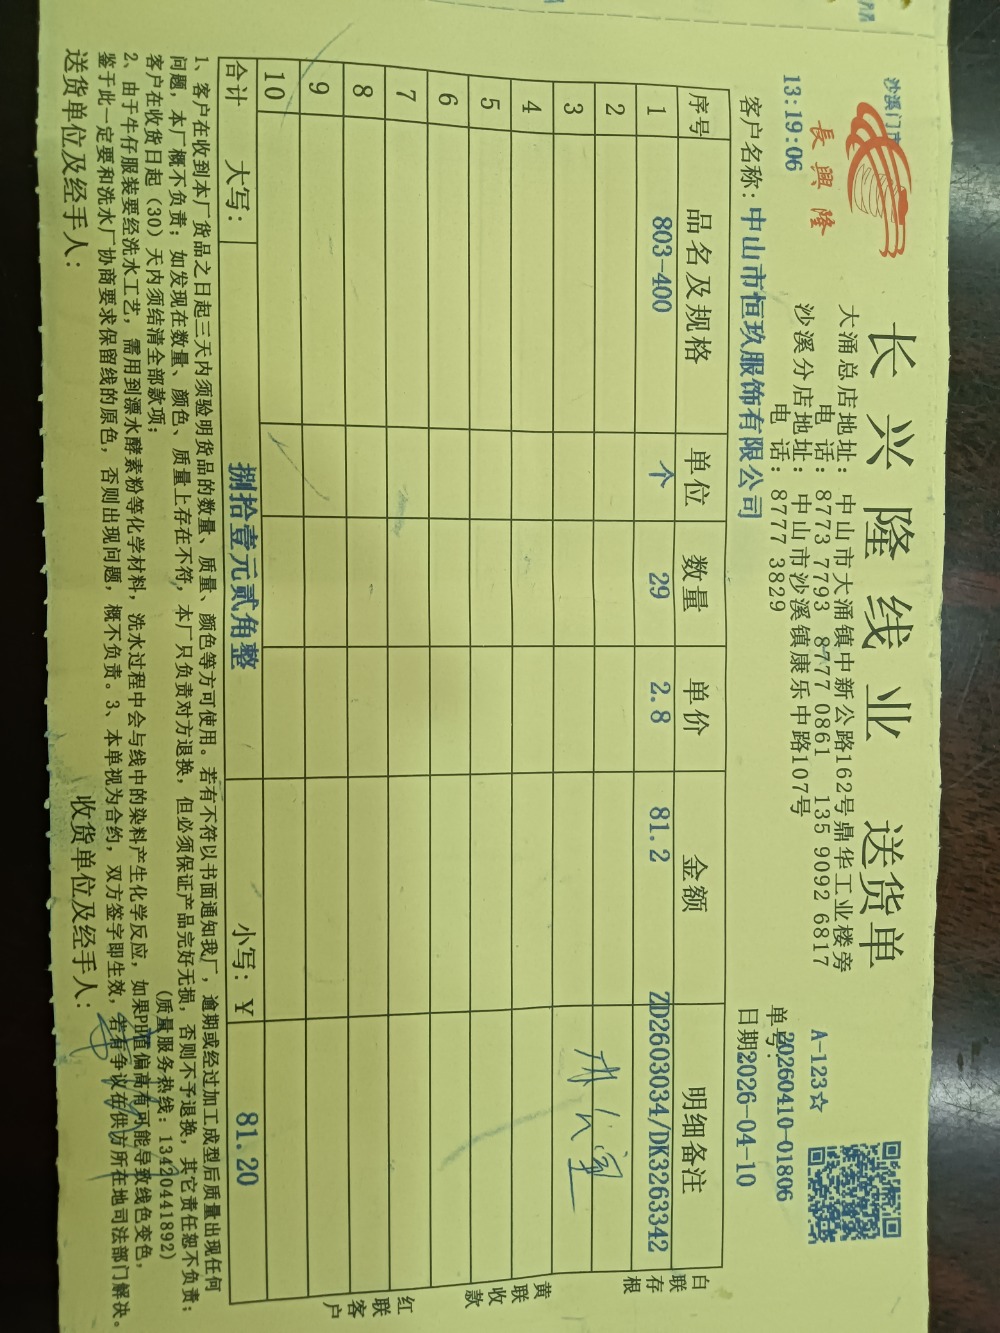 沙溪门市
長興隆
13:19:06
长兴隆线业 送货单
大涌总店地址: 中山市大涌镇中新公路162号鼎华工业楼旁
电 话: 8773 7793 8777 0861 135 9092 6817
沙溪分店地址: 中山市沙溪镇康乐中路107号
电 话: 8777 3829
A-123☆
单号: 20260410-01806
客户名称: 中山市恒玖服饰有限公司
日期2026-04-10
序号 品名及规格 单位 数量 单价 金额 明细备注
1 803-400 个 29 2.8 81.2 ZD2603034/DK3263342
2
3
4
5
6
7
8
9
10
合计 大写: 捌拾壹元贰角整 小写: ¥ 81.20
白联存根
黄联收款
红联客户
1、客户在收到本厂货品之日起三天内须验明货品的数量、质量、颜色等方可使用。若有不符以书面通知我厂，逾期或经过加工成型后质量出现任何
问题，本厂概不负责；如发现在数量、颜色、质量上存在不符，本厂只负责对方退换，但必须保证产品完好无损，否则不予退换，其它责任恕不负责；
客户在收货日起（30）天内须结清全部款项； (质量服务热线：13420441892)
2、由于牛仔服装要经洗水工艺，需用到漂水酵素粉等化学材料，洗水过程中会与线中的染料产生化学反应，如果PH值偏高有可能导致线色变色，
鉴于此一定要和洗水厂协商要求保留线的原色，否则出现问题，概不负责。3、本单视为合约，双方签字即生效，若有争议在供方所在地司法部门解决。
送货单位及经手人: 收货单位及经手人: